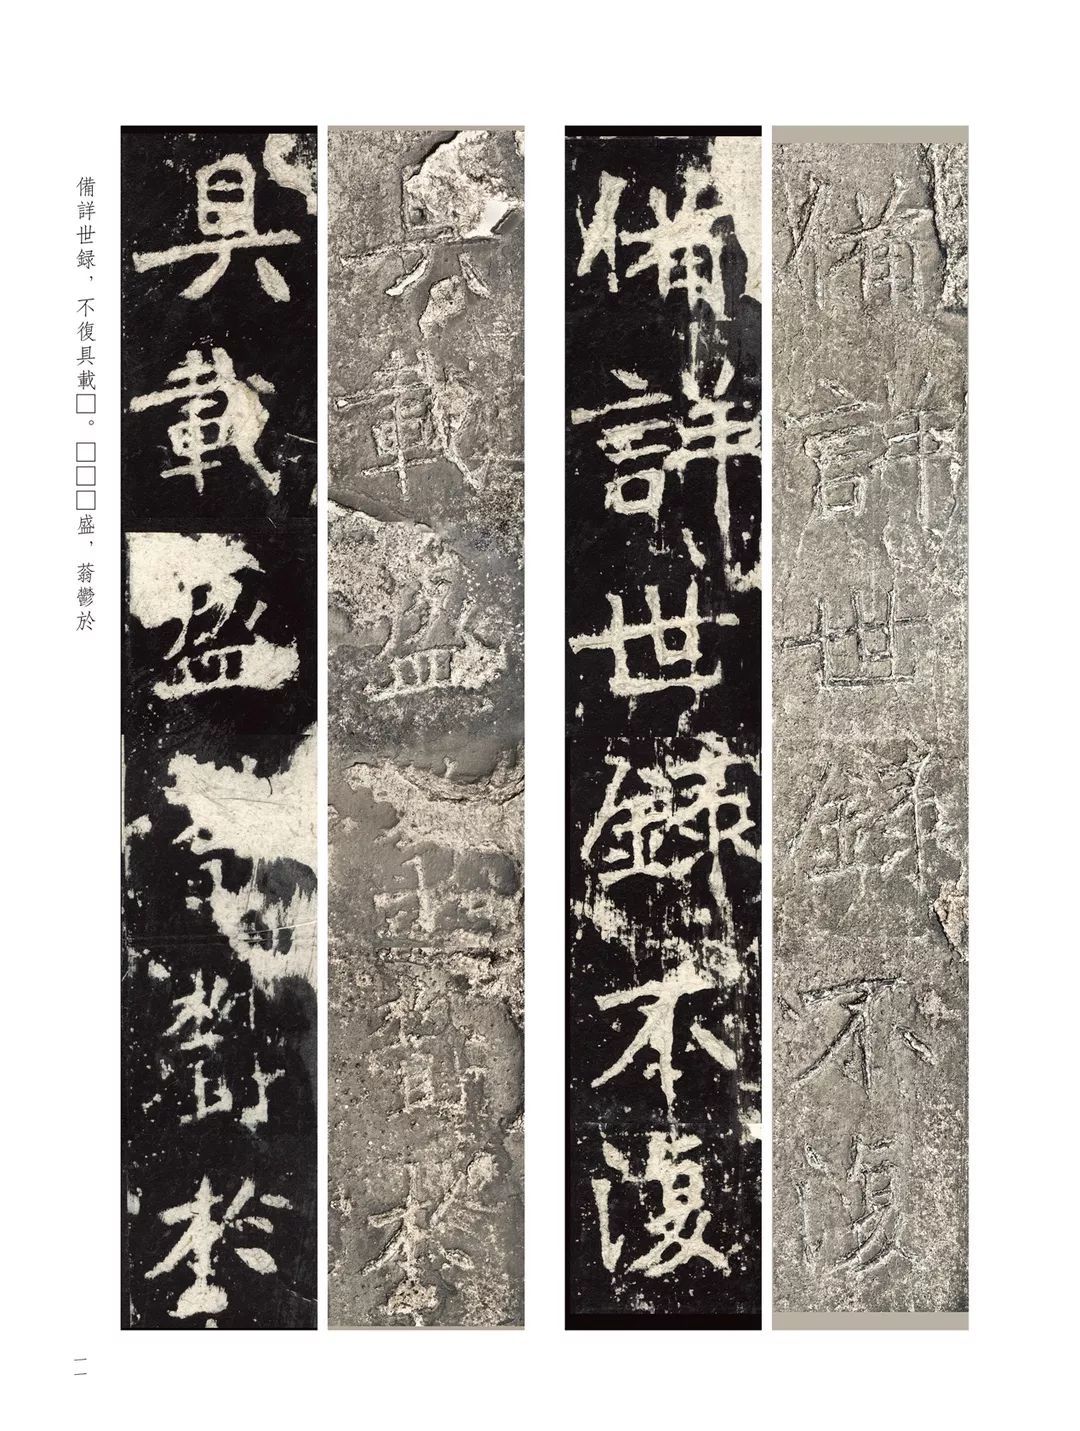 備詳世録不復
備詳世録不復
具載盛蓊鬱於
具載盛蓊鬱於
備詳世録，不復具載□。□□□盛，蓊鬱於
一一